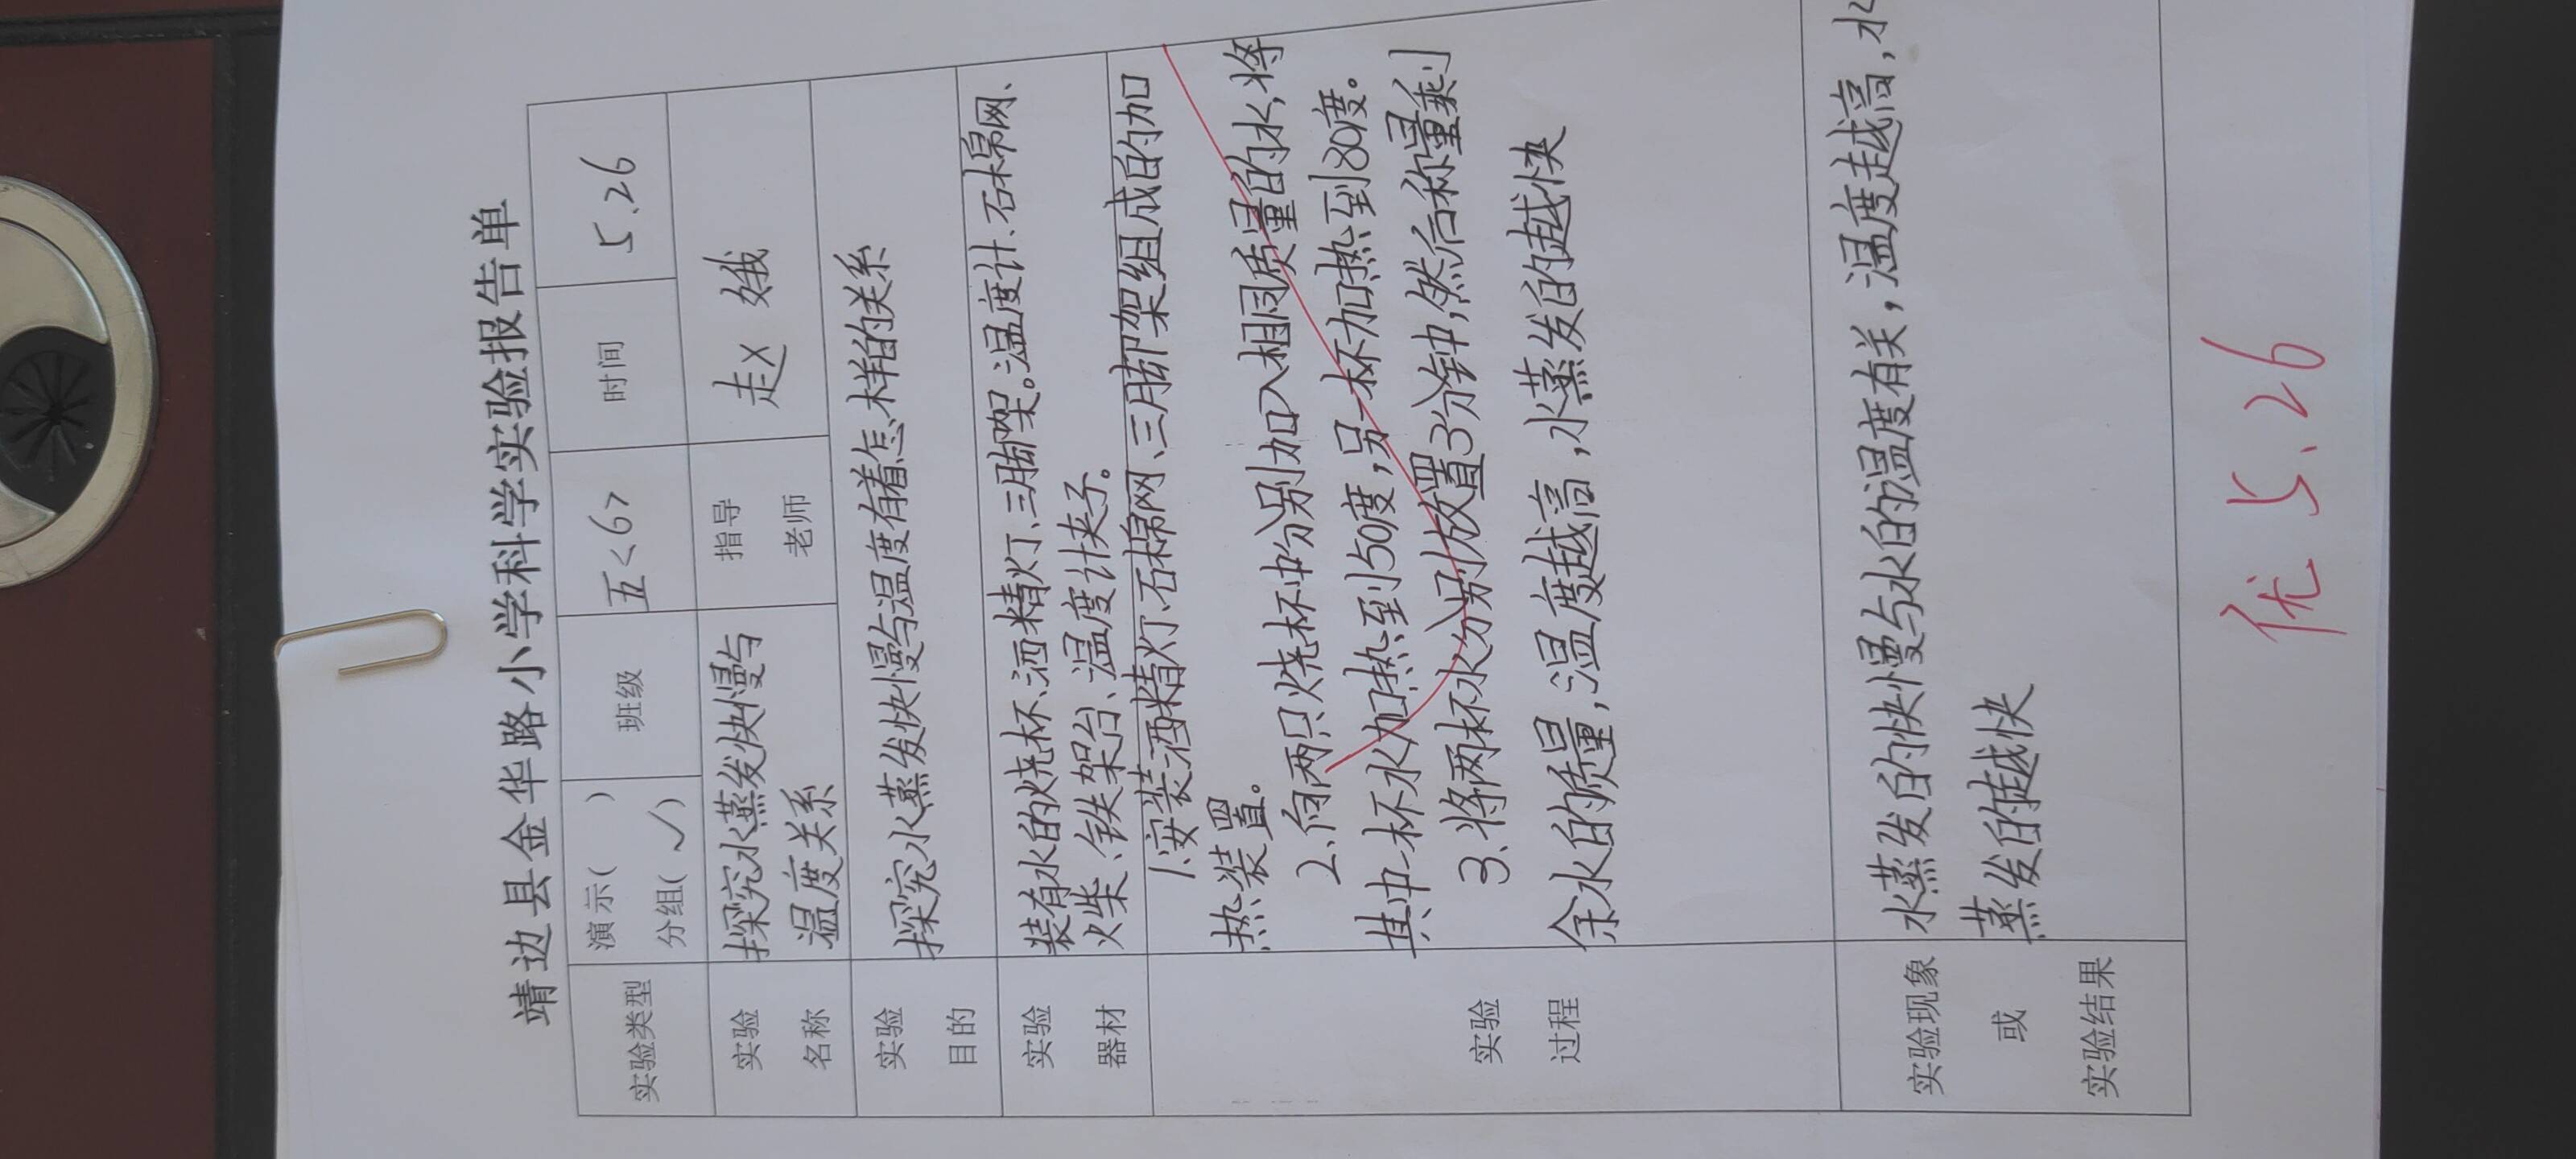 靖边县金华路小学科学实验报告单
实验类型 演示( ) 分组(✓) 班级 五<6> 时间 5.26
实验名称 探究水蒸发快慢与 指导老师 赵 娥
温度关系
实验目的 探究水蒸发快慢与温度有着怎样的关系
实验器材 装有水的烧杯、酒精灯、三脚架。温度计、石棉网、
火柴、铁架台、温度计夹子。
实验过程
1.安装酒精灯、石棉网、三脚架组成的加
热装置。
2.向两只烧杯中分别加入相同质量的水,将
其中一杯水加热到50度,另一杯加热到80度。
3.将两杯水分别放置3分钟,然后称量剩
余水的质量,温度越高,水蒸发的越快
实验现象或实验结果
水蒸发的快慢与水的温度有关,温度越高,水
蒸发的越快
优 5.26